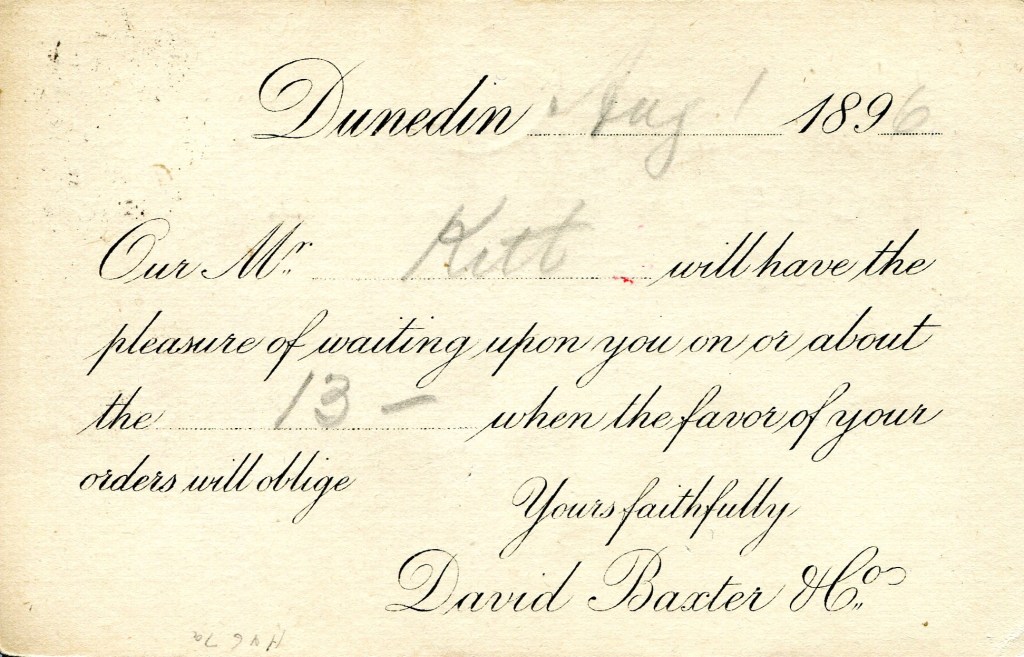 Dunedin Aug 1 1896
Our Mr. Kitt will have the
pleasure of waiting upon you on or about
the 13 – when the favor of your
orders will oblige
Yours faithfully
David Baxter & Co.